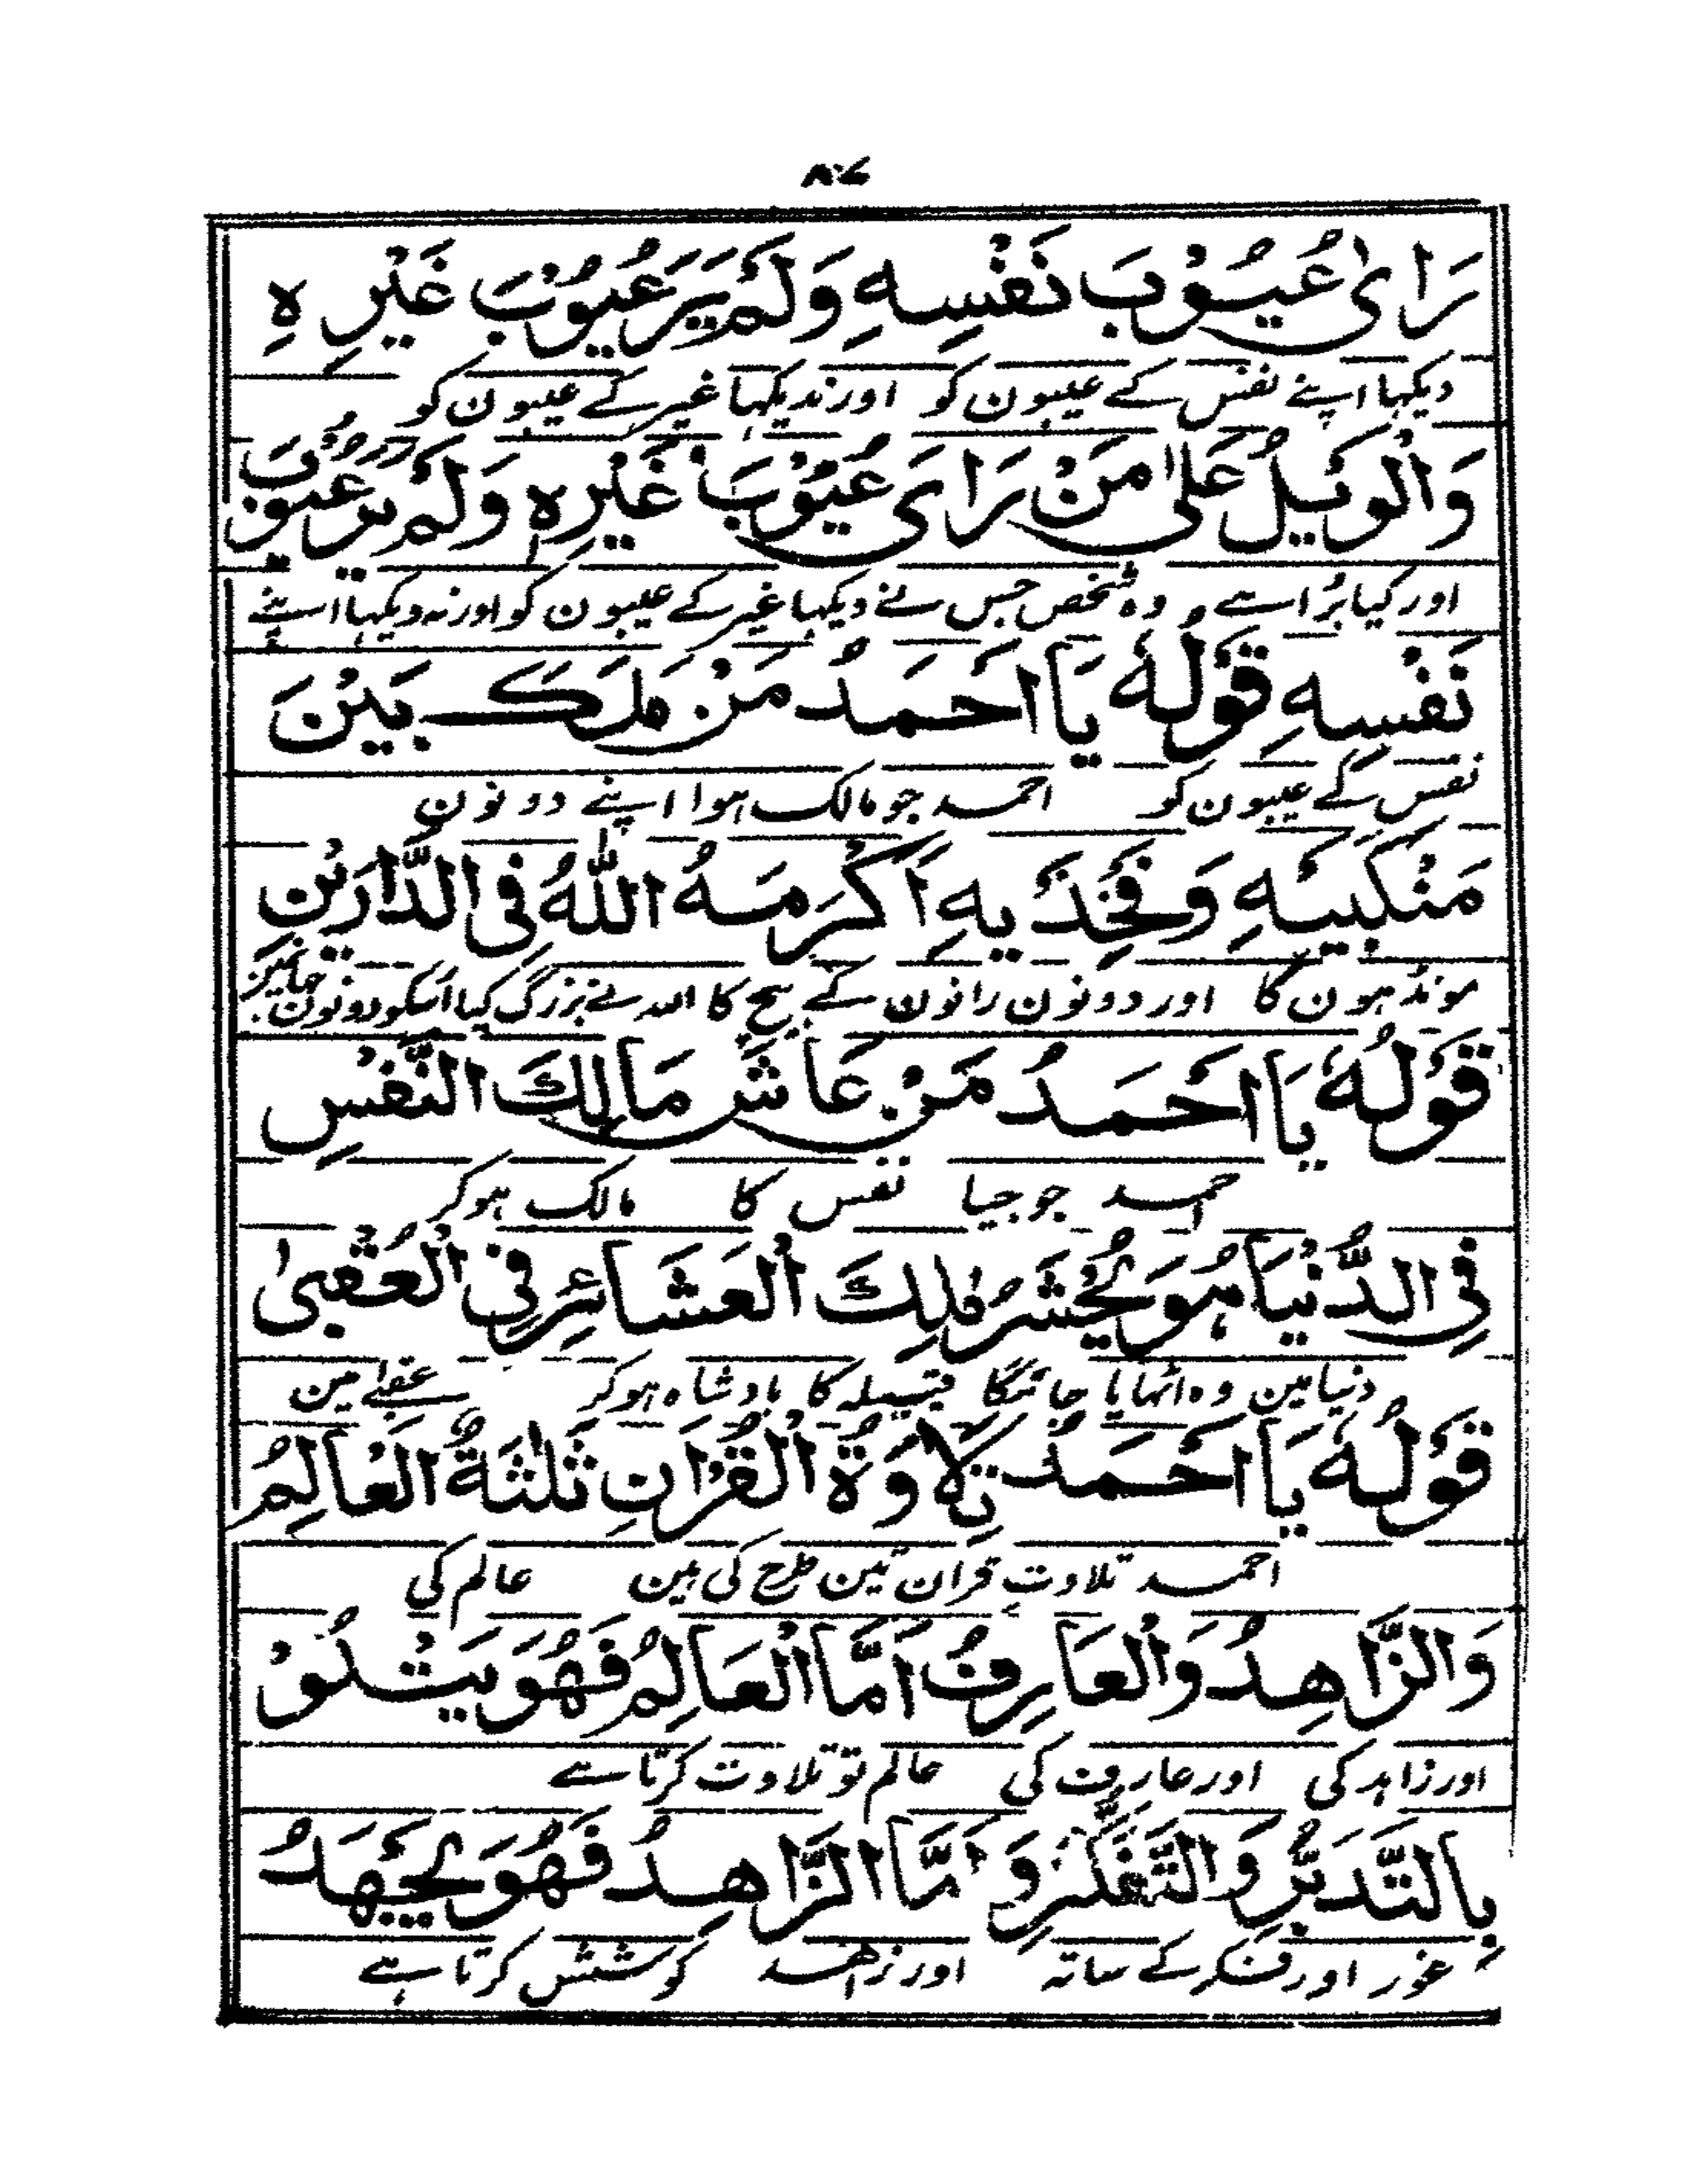 ۸۰۷
رَاٰى عُیُوْبَ نَفْسِهٖ وَلَمْ یَرَ عُیُوْبَ غَیْرِهٖ
دیکہا اپنے نفس کے عیبون کو اور ندیکہا غیر کے عیبون کو
وَالْوَیْلُ عَلٰى مَنْ رَاٰى عُیُوْبَ غَیْرِهٖ وَلَمْ یَرَ عُیُوْبَ
اور کیا بُرا ہے وہ شخص جس نے دیکہا غیر کے عیبون کو اور نہ دیکہا اپنے
نَفْسِهٖ قَوْلُهٗ یَا اَحْمَدُ مَنْ مَلَكَ بَیْنَ
نفس کے عیبون کو احمد جو مالک ہوا اپنے دونون
مَنْكِبَیْهِ وَفَخِذَیْهِ اَكْرَمَهُ اللّٰهُ فِی الدَّارَیْنِ
مونڈہون کا اور دونون رانون کے بیچ کا اللہ نے بزرگ کیا اُسکو دونون جہانمین
قَوْلُهٗ یَا اَحْمَدُ مَنْ عَاشَ مَالِكَ النَّفْسِ
احمد جو جیا نفس کا مالک ہوکر
فِی الدُّنْیَا هُوَ یُحْشَرُ مَلِكَ الْعَشَائِرِ فِی الْعُقْبٰى
دنیا مین وہ اٹہایا جائیگا قبیلہ کا بادشاہ ہوکر عقبے مین
قَوْلُهٗ یَا اَحْمَدُ تِلَاوَةُ الْقُرْاٰنِ ثَلٰثَةٌ الْعَالِمُ
احمد تلاوت قران تین طرح کی ہین عالم کی
وَالزَّاهِدُ وَالْعَارِفُ اَمَّا الْعَالِمُ فَهُوَ یَتْلُوْ
اور زاہد کی اور عارف کی عالم تو تلاوت کرتا ہے
بِالتَّدَبُّرِ وَالتَّفَكُّرِ وَ اَمَّا الزَّاهِدُ فَهُوَ یَجْتَهِدُ
غور اور فکر کے ساتہ اور زاہد کوشش کرتا ہے